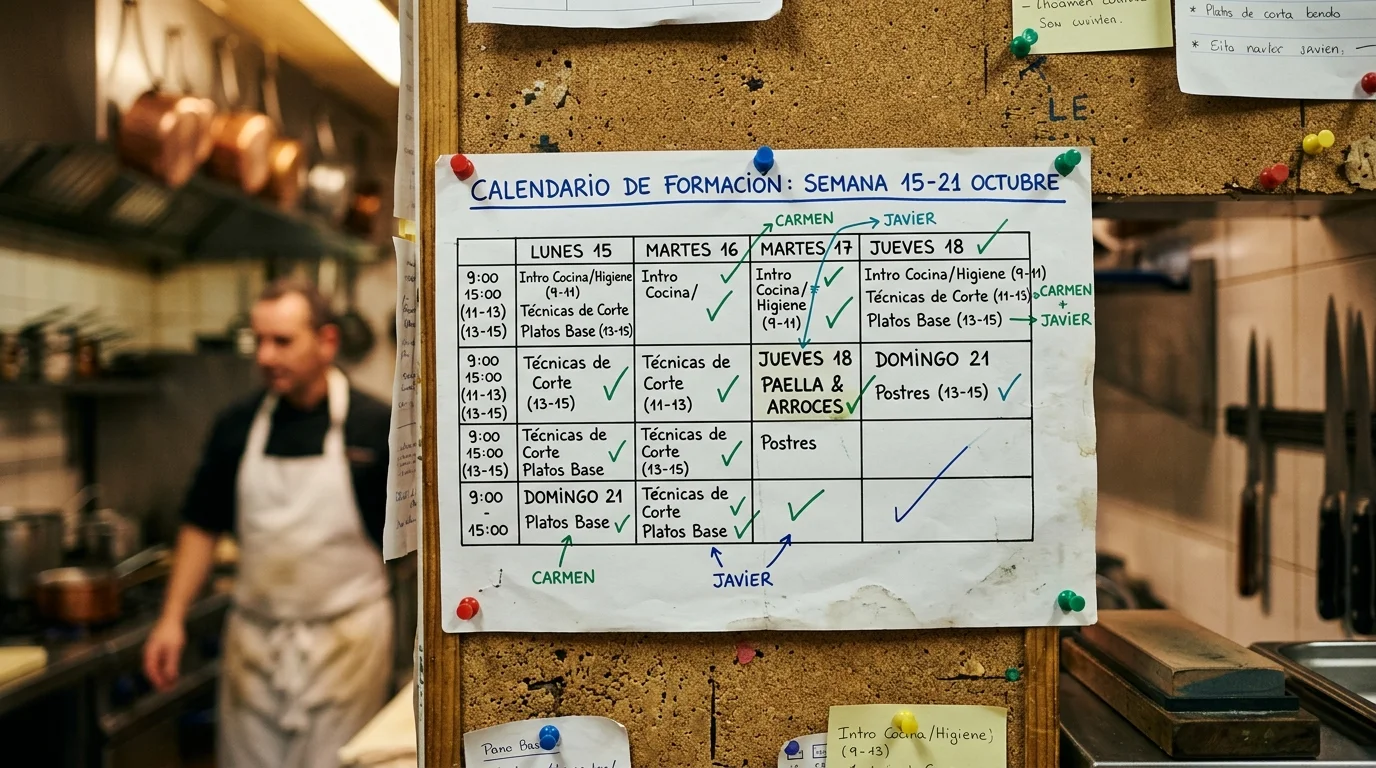 * Platos de corta bendo
LE
CALENDARIO DE FORMACIÓN: SEMANA 15-21 OCTUBRE
CARMEN
JAVIER
LUNES 15
MARTES 16
MARTES 17
JUEVES 18
9:00
15:00
(11-13)
(13-15)
Intro Cocina/Higiene
(9-11)
Técnicas de Corte
Platos Base (13-15)
Intro
Cocina/
Intro
Cocina/
Higiene
(9-11)
Intro Cocina/Higiene (9-11)
Técnicas de Corte (11-15)
Platos Base (13-15)
CARMEN
+
JAVIER
9:00
15:00
(11-13)
(13-15)
Técnicas de
Corte
(13-15)
Técnicas de
Corte
(11-13)
JUEVES 18
PAELLA &
ARROCES
DOMINGO 21
Postres (13-15)
9:00
15:00
(13-15)
Técnicas de
Corte
Platos Base
Técnicas de
Corte
(13-15)
Postres
9:00
-
15:00
DOMINGO 21
Platos Base
Técnicas de
Corte
Platos Base
CARMEN
JAVIER
Intro Cocina/Higiene)
(9-13)